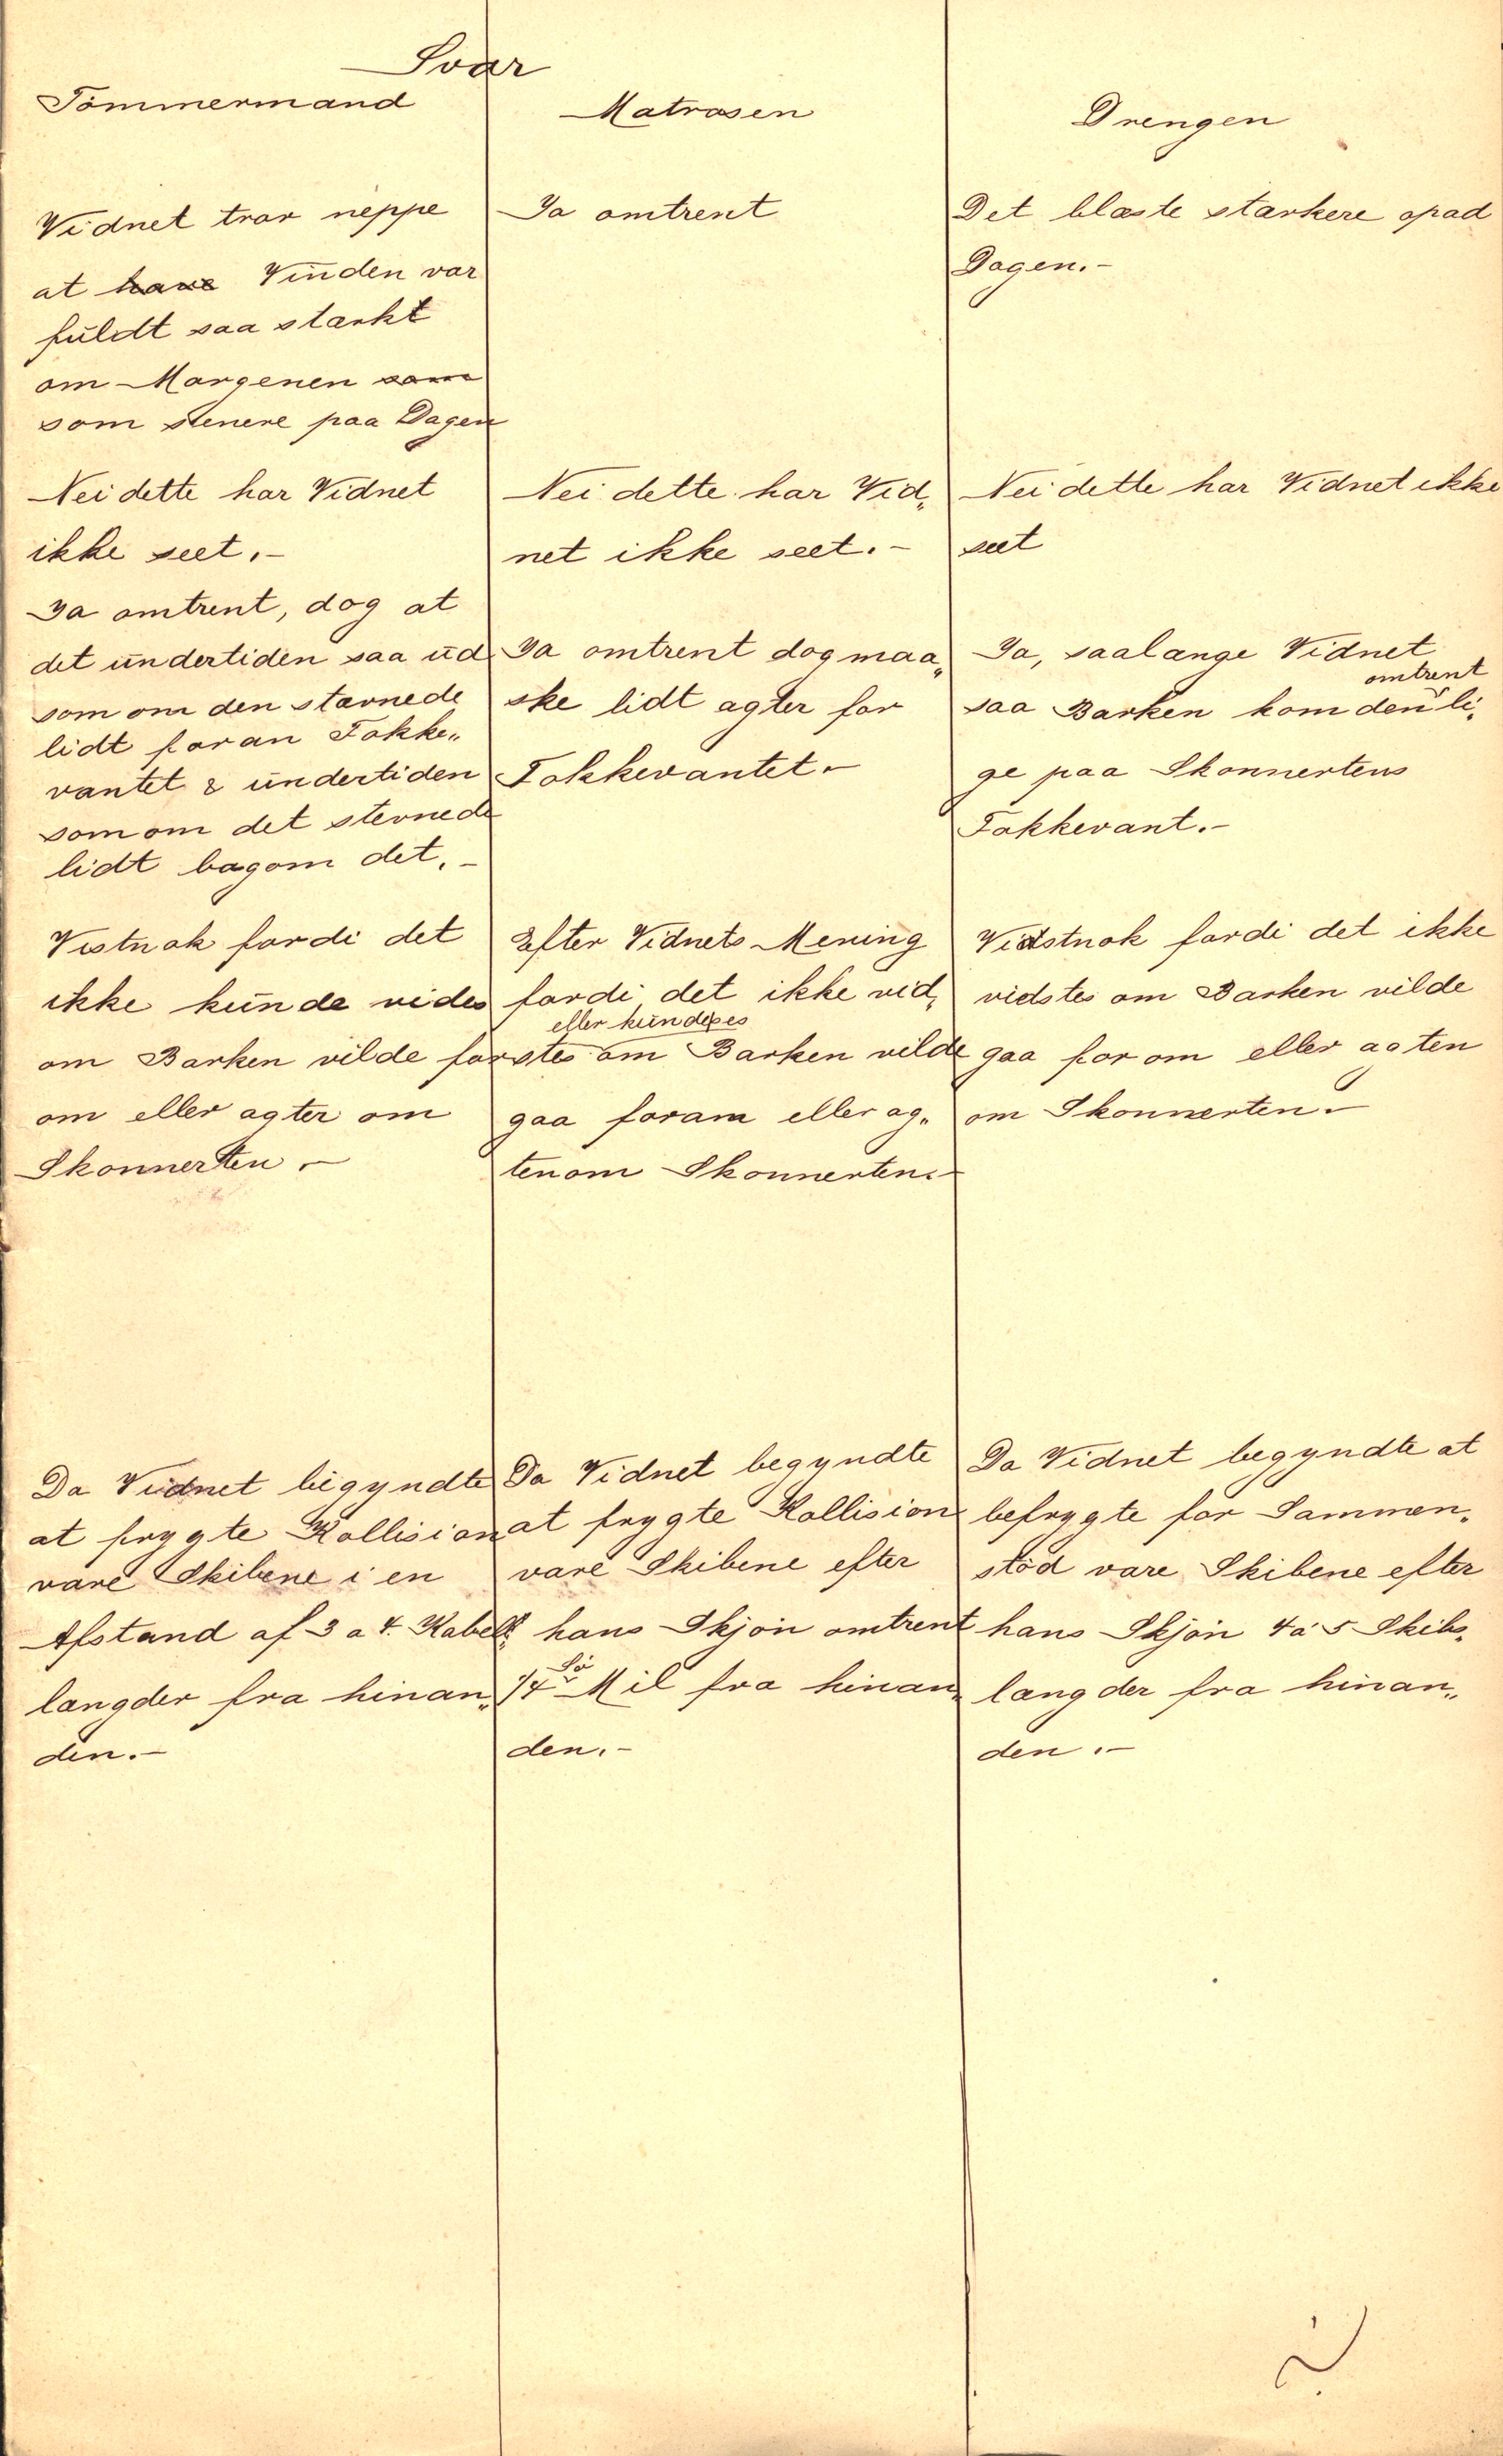 Svar
Tömmermand
Vidnet tror neppe
at have Vinden var
fuldt saa stærkt
om Morgenen som
som senere paa Dagen
Nei dette har Vidnet
ikke seet.-
Ja omtrent, dog at
det undertiden saa ud
som om den stævnede
lidt foran Fokke„
vantet & undertiden
som om det stevnede
lidt bagom det.-
Vistnok fordi det
ikke kunde vides
om Barken vilde for
om eller agter om
Skonnerten.-
Da Vidnet begyndte
at frygte Kollision
vare Skibene i en
Afstand af 3 a 4. Kabel„
længder fra hinan„
den.-
Matrosen
Ja omtrent
Nei dette har Vid„
net ikke seet.-
Ja omtrent dog maa„
ske lidt agter for
Fokkevantet.-
Efter Vidnets Mening
fordi det ikke vid„
eller kundes
stes om Barken vilde
gaa foran eller ag„
tenom Skonnerten.-
Da Vidnet begyndte
at frygte Kollision
vare Skibene efter
hans Skjön omtrent
1/4 Sö Mil fra hinan„
den.-
Drengen
Det blæste stærkere opad
Dagen.-
Nei dette har Vidnet ikke
seet
Ja, saalænge Vidnet
omtrent
saa Barken kom den li„
ge paa Skonnertens
Fokkevant.-
Vidstnok fordi det ikke
vidstes om Barken vilde
gaa for om eller agten
om Skonnerten.-
Da Vidnet begyndte at
befrygte for Sammen„
stöd vare Skibene efter
hans Skjön 4 á 5 Skibs„
længder fra hinan„
den.-